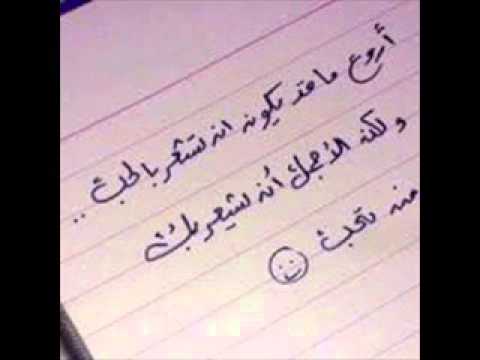 أروع ما قد يكون ان تشعر بالحب ..
ولكن الأجمل أن يشعر بك
من تحب